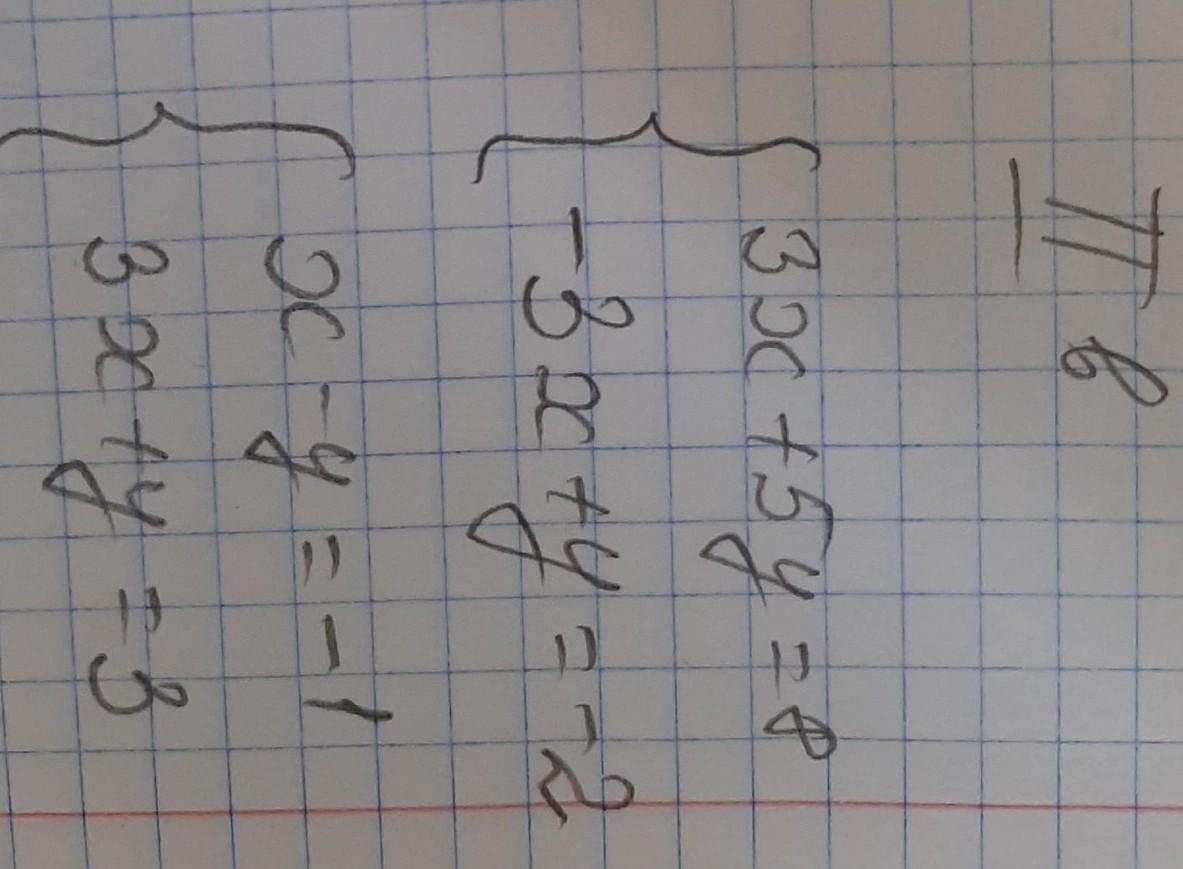 II в
3x + 5y = 8
-3x + y = -2
x - y = -1
3x + y = 3